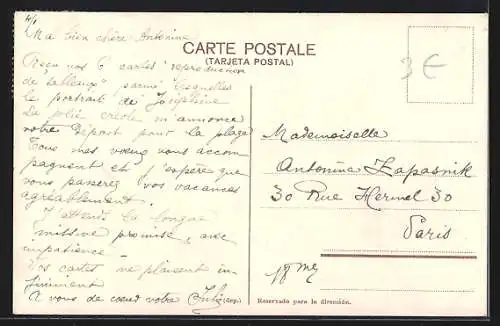 4/1
Ma bien chère Antonine
Reçu vos 6 cartes "reproduction
de tableaux" parmi lesquelles
le portrait de Joséphine
La jolie créole m'annonce
votre départ pour la plage
Tous mes vœux vous accom
pagnent et j'espère que
vous passerez vos vacances
agréablement.
J'attends la longue
missive promise, avec
impatience -
Vos cartes me plaisent in
finiment
A vous de cœur votre
CARTE POSTALE
(TARJETA POSTAL)
3€
Mademoiselle
Antonine Zapasnik
30 Rue Hermel 30
Paris
18 me
Reservado para la dirección.